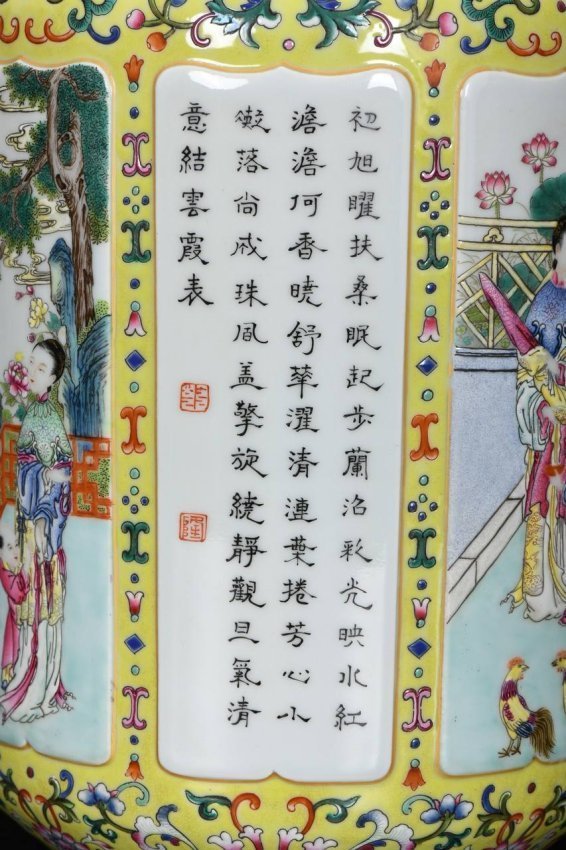 初旭曜扶桑眠起步蘭沼彩光映水紅
澹澹何香曉舒華濯清漣葉捲芳心小
漱落尚成珠風盖擎旋繞靜觀旦氣清
意結雲霞表